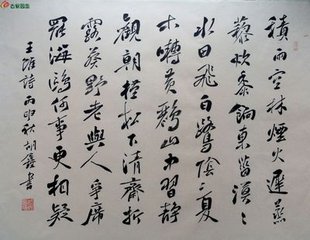 積雨空林煙火遲蒸
藜炊黍餉東菑漠〻
水田飛白鷺陰〻夏
木囀黃鸝山中習静
觀朝槿松下清齋折
露葵野老與人爭席
罷海鷗何事更相疑
王維詩丙申秋胡書